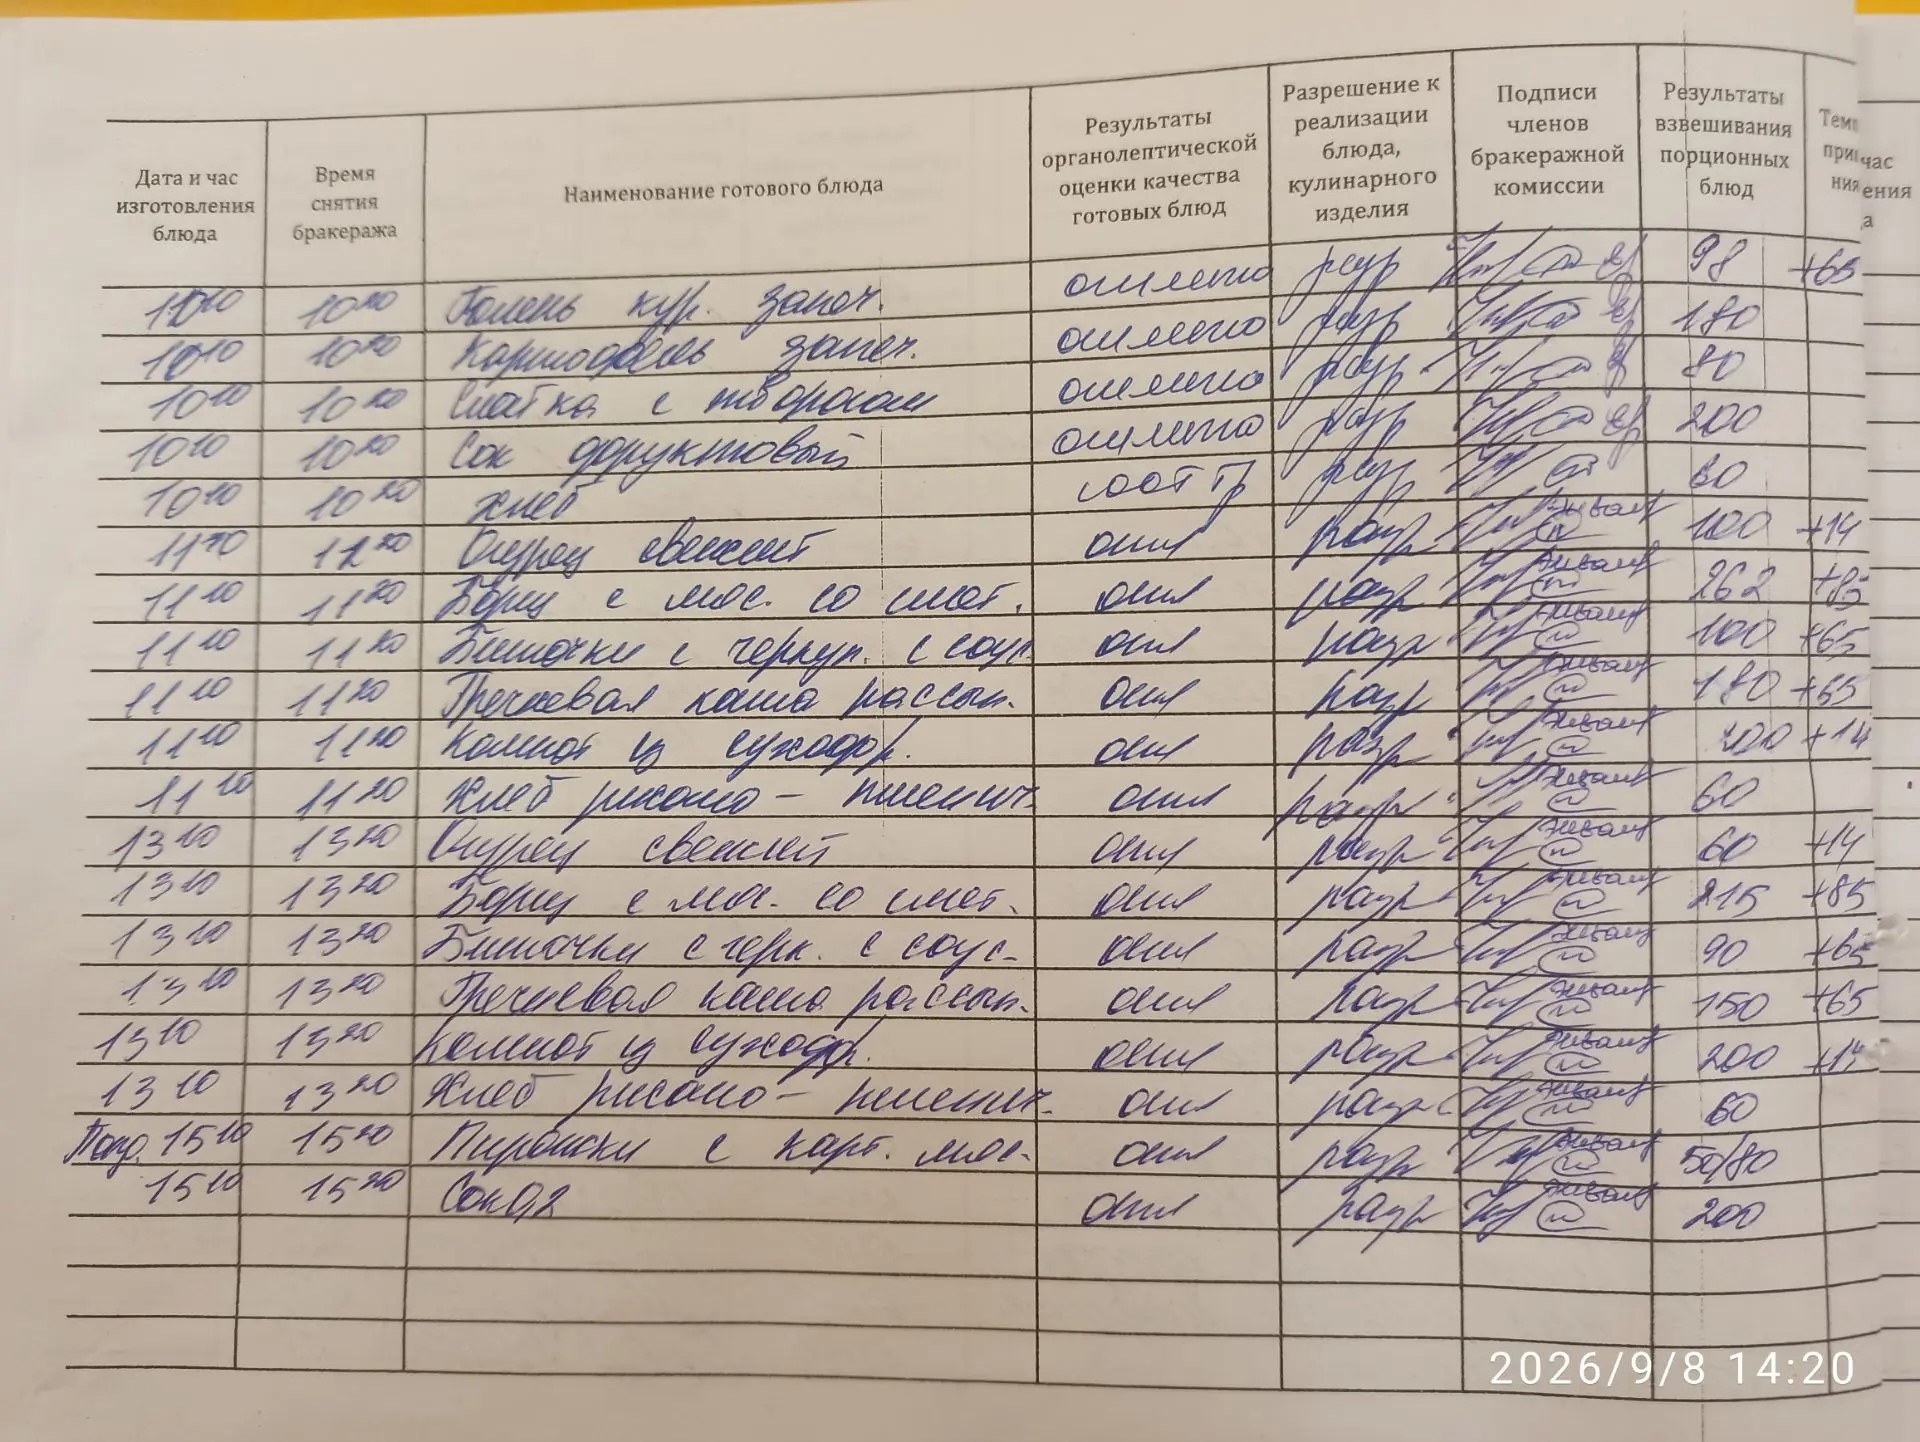 Дата и час изготовления блюда Время снятия бракеража Наименование готового блюда Результаты органолептической оценки качества готовых блюд Разрешение к реализации блюда, кулинарного изделия Подписи членов бракеражной комиссии Результаты взвешивания порционных блюд Темп при ния
час ения а
10 10 10 20 Голень кур. запеч. отлично разр 98 +65
10 10 10 20 Картофель запеч. отлично разр 180
10 10 10 20 с творогом отлично разр 80
10 10 10 20 Сок фруктовый отлично разр 200
10 10 10 20 Хлеб соот тр разр 60
11 10 11 20 Огурец свежий отл разр 100 +14
11 10 11 20 Борщ с мяс. со смет. отл разр 262 +85
11 10 11 20 Биточки с с соус отл разр 100 +65
11 10 11 20 Гречневая каша рассып. отл разр 180 +65
11 10 11 20 Компот из сухофр. отл разр 200 +14
11 10 11 20 Хлеб ржано - пшенич. отл разр 60
13 10 13 20 Огурец свежий отл разр 60 +14
13 10 13 20 Борщ с мяс. со смет. отл разр 215 +85
13 10 13 20 Биточки с с соус. отл разр 90 +65
13 10 13 20 Гречневая каша рассып. отл разр 150 +65
13 10 13 20 Компот из сухофр. отл разр 200 +14
13 10 13 20 Хлеб ржано - пшенич. отл разр 60
Полд. 15 10 15 20 Пирожки с карт. мяс. отл разр 50/80
15 10 15 20 Сок 0,2 отл разр 200
2026/9/8 14:20